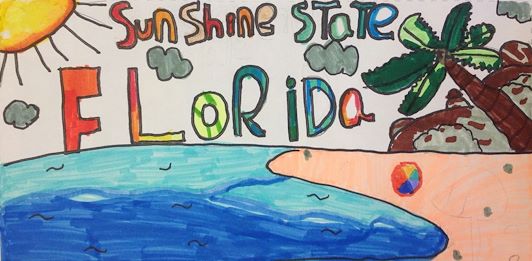 SunShine STaTe
FLoRiDa